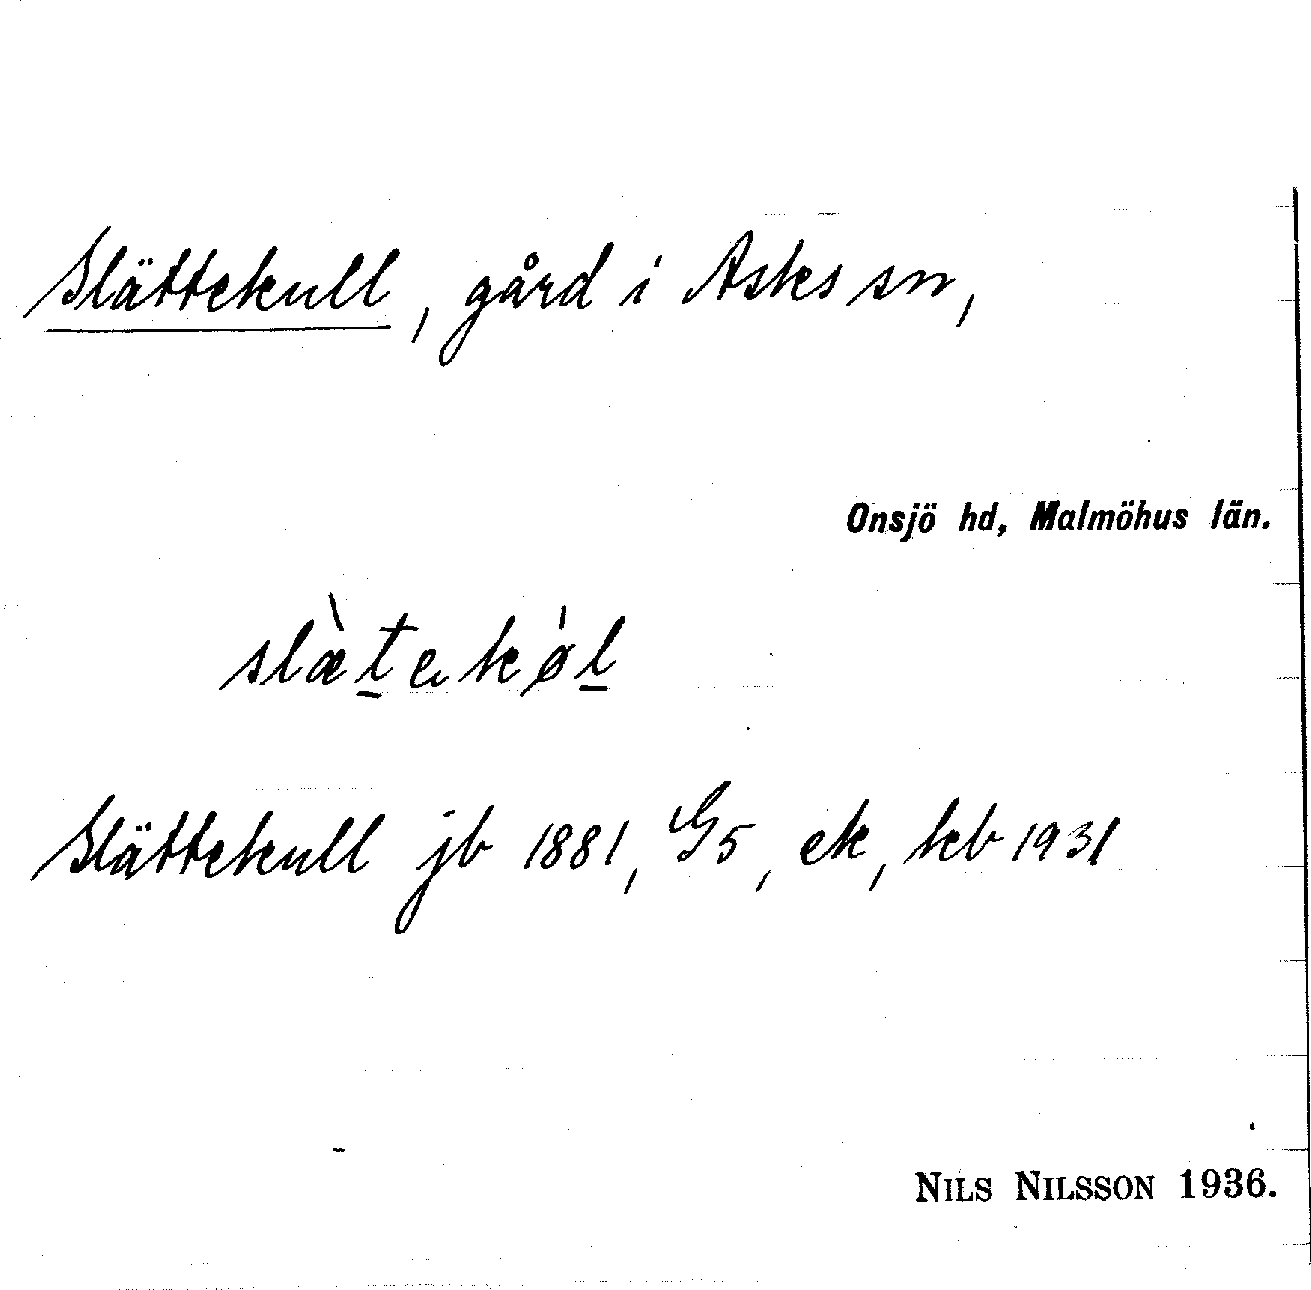 Slättekull, gård i Asks sn,
Onsjö hd, Malmöhus län.
slæ̀t̲ekǿl̲
Slättekull jb 1881, G5, ek, kb 1931
NILS NILSSON 1936.